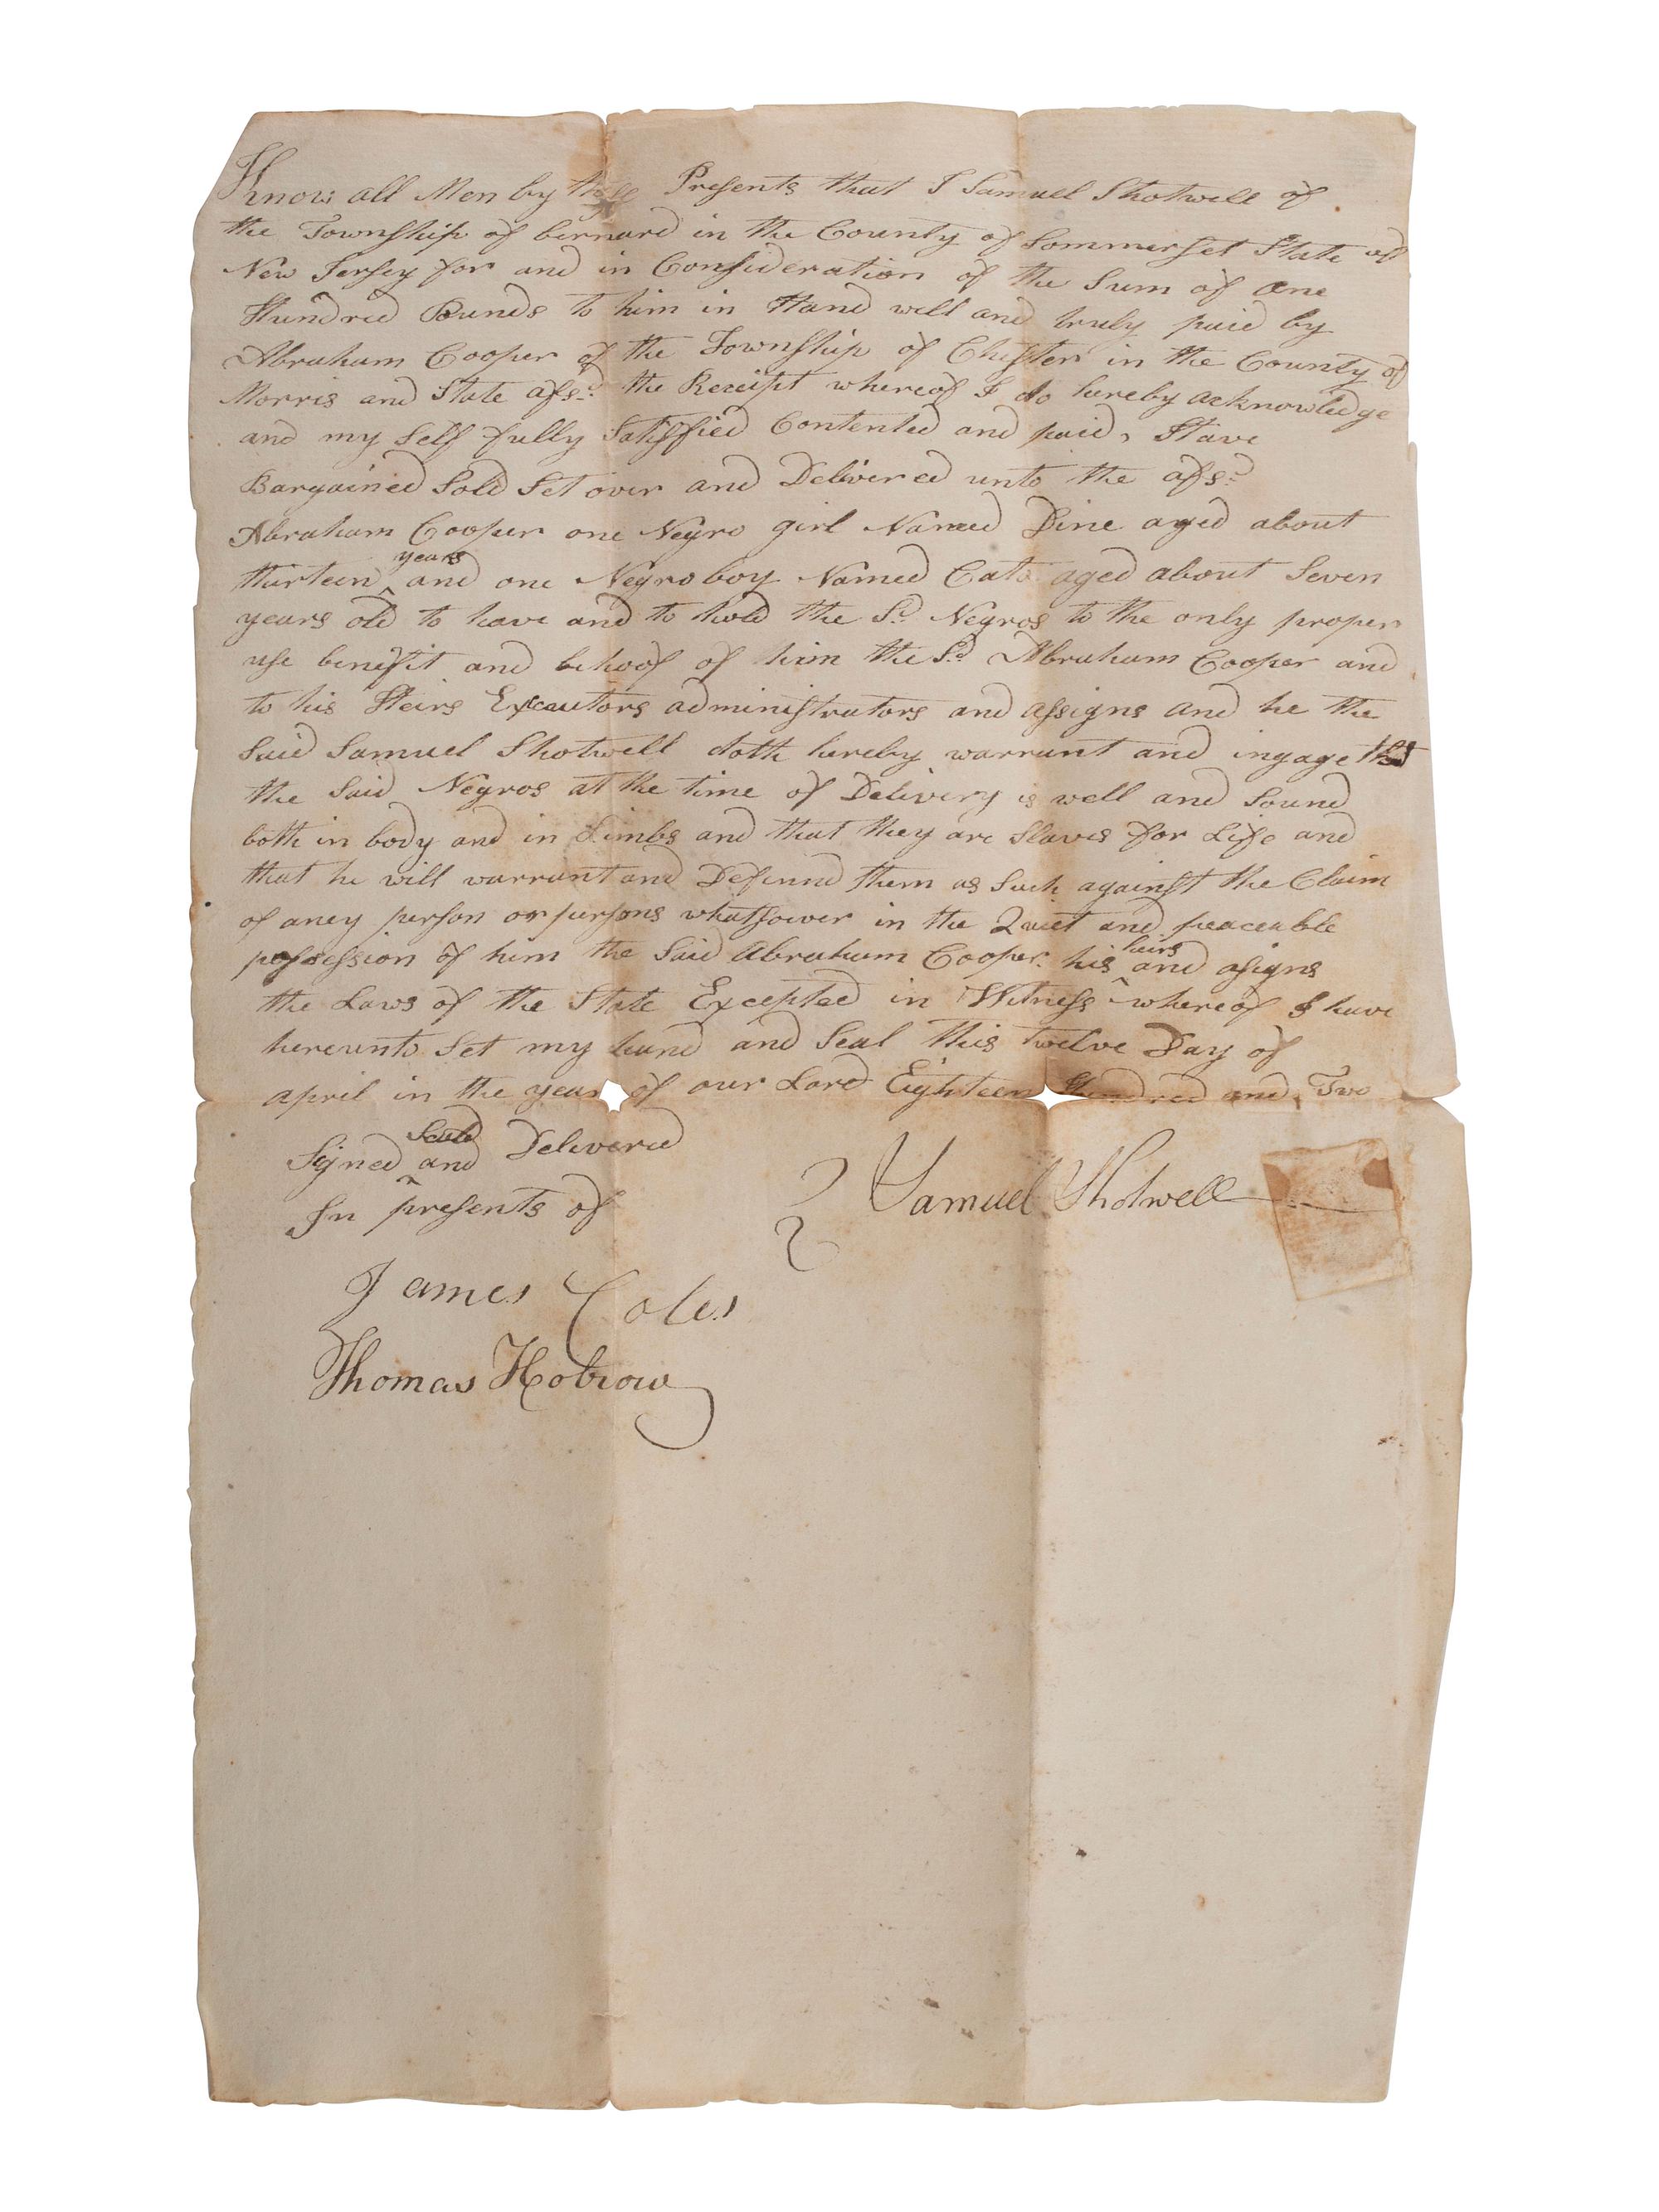 Know all Men by these Presents that I Samuel Shotwell of
the Township of bernard in the County of Sommerset State of
New Jersey for and in Consideration of the Sum of One
Hundred Pounds to him in Hand well and truly paid by
Abraham Cooper of the Township of Chester in the County of
Morris and State afsd. the Receipt whereof I do hereby acknowledge
and my Self fully Satisfied Contented and paid, Have
Bargained Sold Set over and Delivered unto the afsd
Abraham Cooper one Negro girl Named Dine aged about
thirteen ^years and one Negro boy Named Cato aged about Seven
years old to have and to hold the Sd. Negros to the only proper
use benifit and behoof of him the Sd. Abraham Cooper and
to his Heirs Executors administrators and assigns and he the
Said Samuel Shotwell doth hereby warrant and ingage that
the Said Negros at the time of Delivery is well and Sound
both in body and in Limbs and that they are Slaves for Life and
that he will warrant and Defennd them as Such against the Claim
of aney person or persons whatsower in the Quiet and peaceable
possession of him the Said Abraham Cooper his ^hairs and asigns
the Laws of the State Excepted in Witness whereof I have
hereunto Set my hand and Seal this twelve Day of
april in the year of our Lord Eighteen Hundred and Two
Signed ^Seald and Delivered
In presents of
Samuel Shotwell
James Coles
Thomas Hobrow